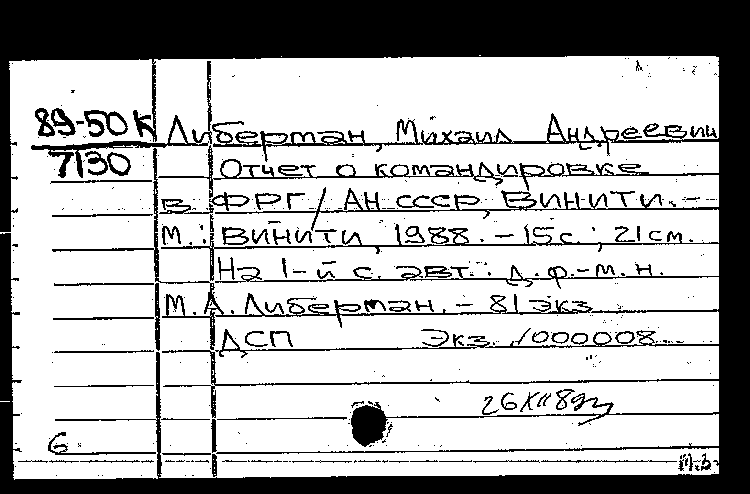 89-50К Либерман, Михаил Андреевич
7130 Отчет о командировке
в ФРГ / АН СССР, ВИНИТИ. -
М.: ВИНИТИ, 1988. - 15 с.; 21 см.
На 1-й с. авт.: д. ф.-м. н.
М. А. Либерман. - 81 экз
ДСП Экз. /000008
26 XII 89
6
М.З.